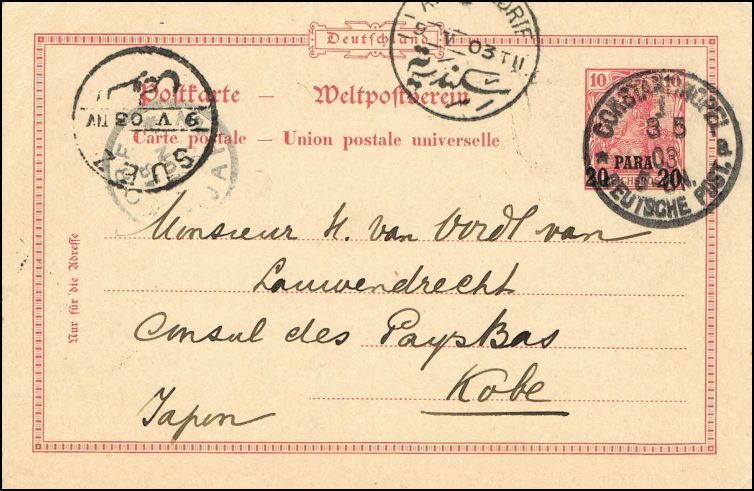 Deutschland
Postkarte — Weltpostverein
Carte postale — Union postale universelle
10 10
PARA
20 20
CONSTANTINOPEL
1
3 5
03
DEUTSCHE POST.
V 03 T II
SUEZ
9 V 03 T IV
KOBE
JAPAN
Nur für die Adresse
Monsieur H. van Oordt van
Lauwendrecht
Consul des Pays Bas
Kobe
Japon